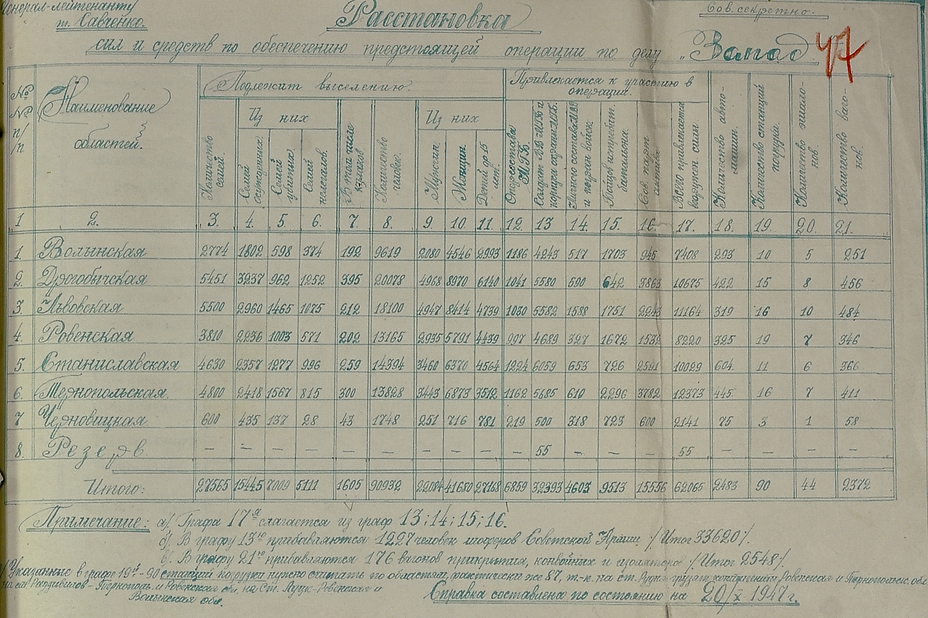 Генерал-лейтенанту
т. Савченко.
Сов. секретно.
Расстановка
сил и средств по обеспечению предстоящей операции по делу „Запад"
47
№№ п/п Наименование областей. Подлежит выселению. Привлекается к участию в операции.
Количество семей. Из них В том числе кулаков. Количество человек. Из них
Семей Семей Семей Мужчин Женщин Детей до 15 лет.
Всего привлекается Количество авто-машин. Количество станций погрузки. Количество эшело-нов Количество ваго-нов.
1 2. 3. 4. 5. 6. 7. 8. 9. 10. 11. 12. 13 14. 15. 16. 17. 18. 19. 20. 21.
1 Волынская 2774 1802 598 374 192 9619 2080 4546 2993 1186 4243 517 1703 945 7408 293 10 5 251
2 Дрогобычская 5451 3237 962 1252 395 20078 4968 8970 6140 1041 5580 590 642 3863 10675 422 15 8 456
3. Львовская 5500 2960 1465 1075 212 18100 4947 8414 4739 1030 5582 1588 1751 2243 11164 319 16 10 484
4. Ровенская 3810 2236 1003 571 202 13165 2935 5791 4439 997 4689 327 1672 8220 325 19 7 346
5. Станиславская 4630 2357 1277 996 259 14394 3460 6370 4564 1224 6059 653 726 2591 10029 604 11 6 366
6. Тернопольская 4800 2418 1567 815 300 13828 3443 6873 3512 1162 5685 610 2296 3782 12373 445 16 7 411
7 Черновицкая 600 435 137 28 43 1748 251 716 781 219 500 318 723 600 2141 75 3 1 58
8. Резерв — — — — — — — — — — 55 — — — 55 — — — —
Итого: 27365 15445 7009 5111 1605 90932 22084 41680 27168 6859 32393 4603 9513 15556 62065 2483 90 44 2372
Примечание: а/ Графа 17я слагается из граф 13; 14; 15; 16.
б/ В графу 13ю прибавляются 1227 человек шоферов Советской Армии /Итог 33620/.
в/ В графу 21ю прибавляются 176 вагонов прикрытия, конвойных и изоляторов /Итог 2548/.
Указанные в графе 19й - 90 станций погрузки нужно считать по областям, фактически же 87, т-к. на ст.
Волынская обл.
Справка составлена по состоянию на 20/X-1947 г.